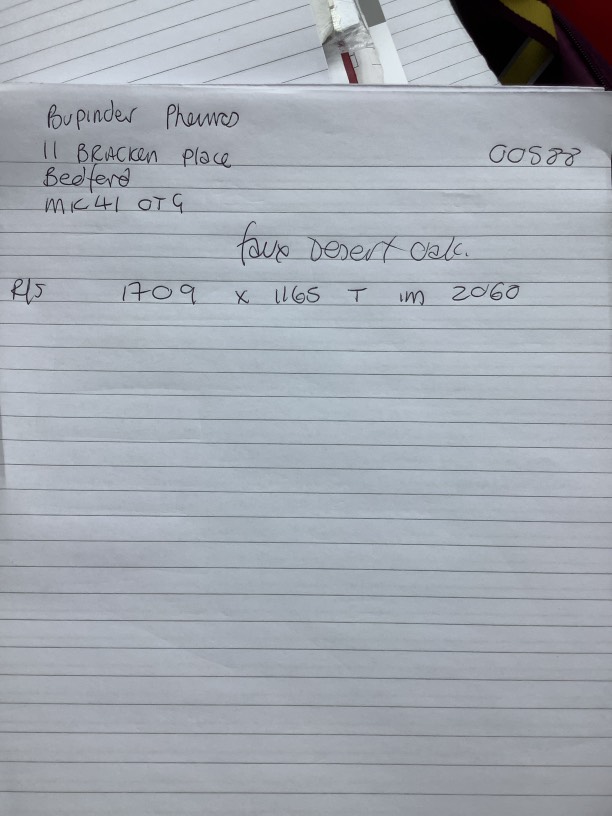 Bupinder
11 BRACKEN Place
00588
Bedford
MK41 0TG
faux Desert Oak.
R/S 1709 x 1165 T IM 2060